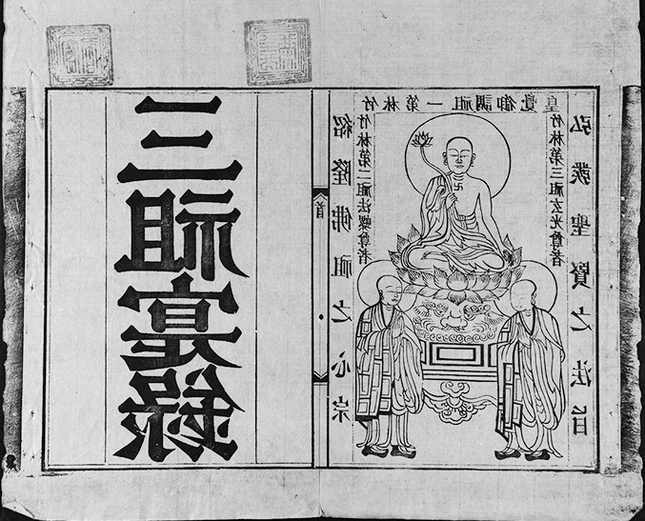 弘聖賢之法旨
竹林第一祖調御覺皇
竹林第三祖玄光尊者
竹林第二祖法螺尊者
紹隆佛祖之心宗
首
三祖寔錄